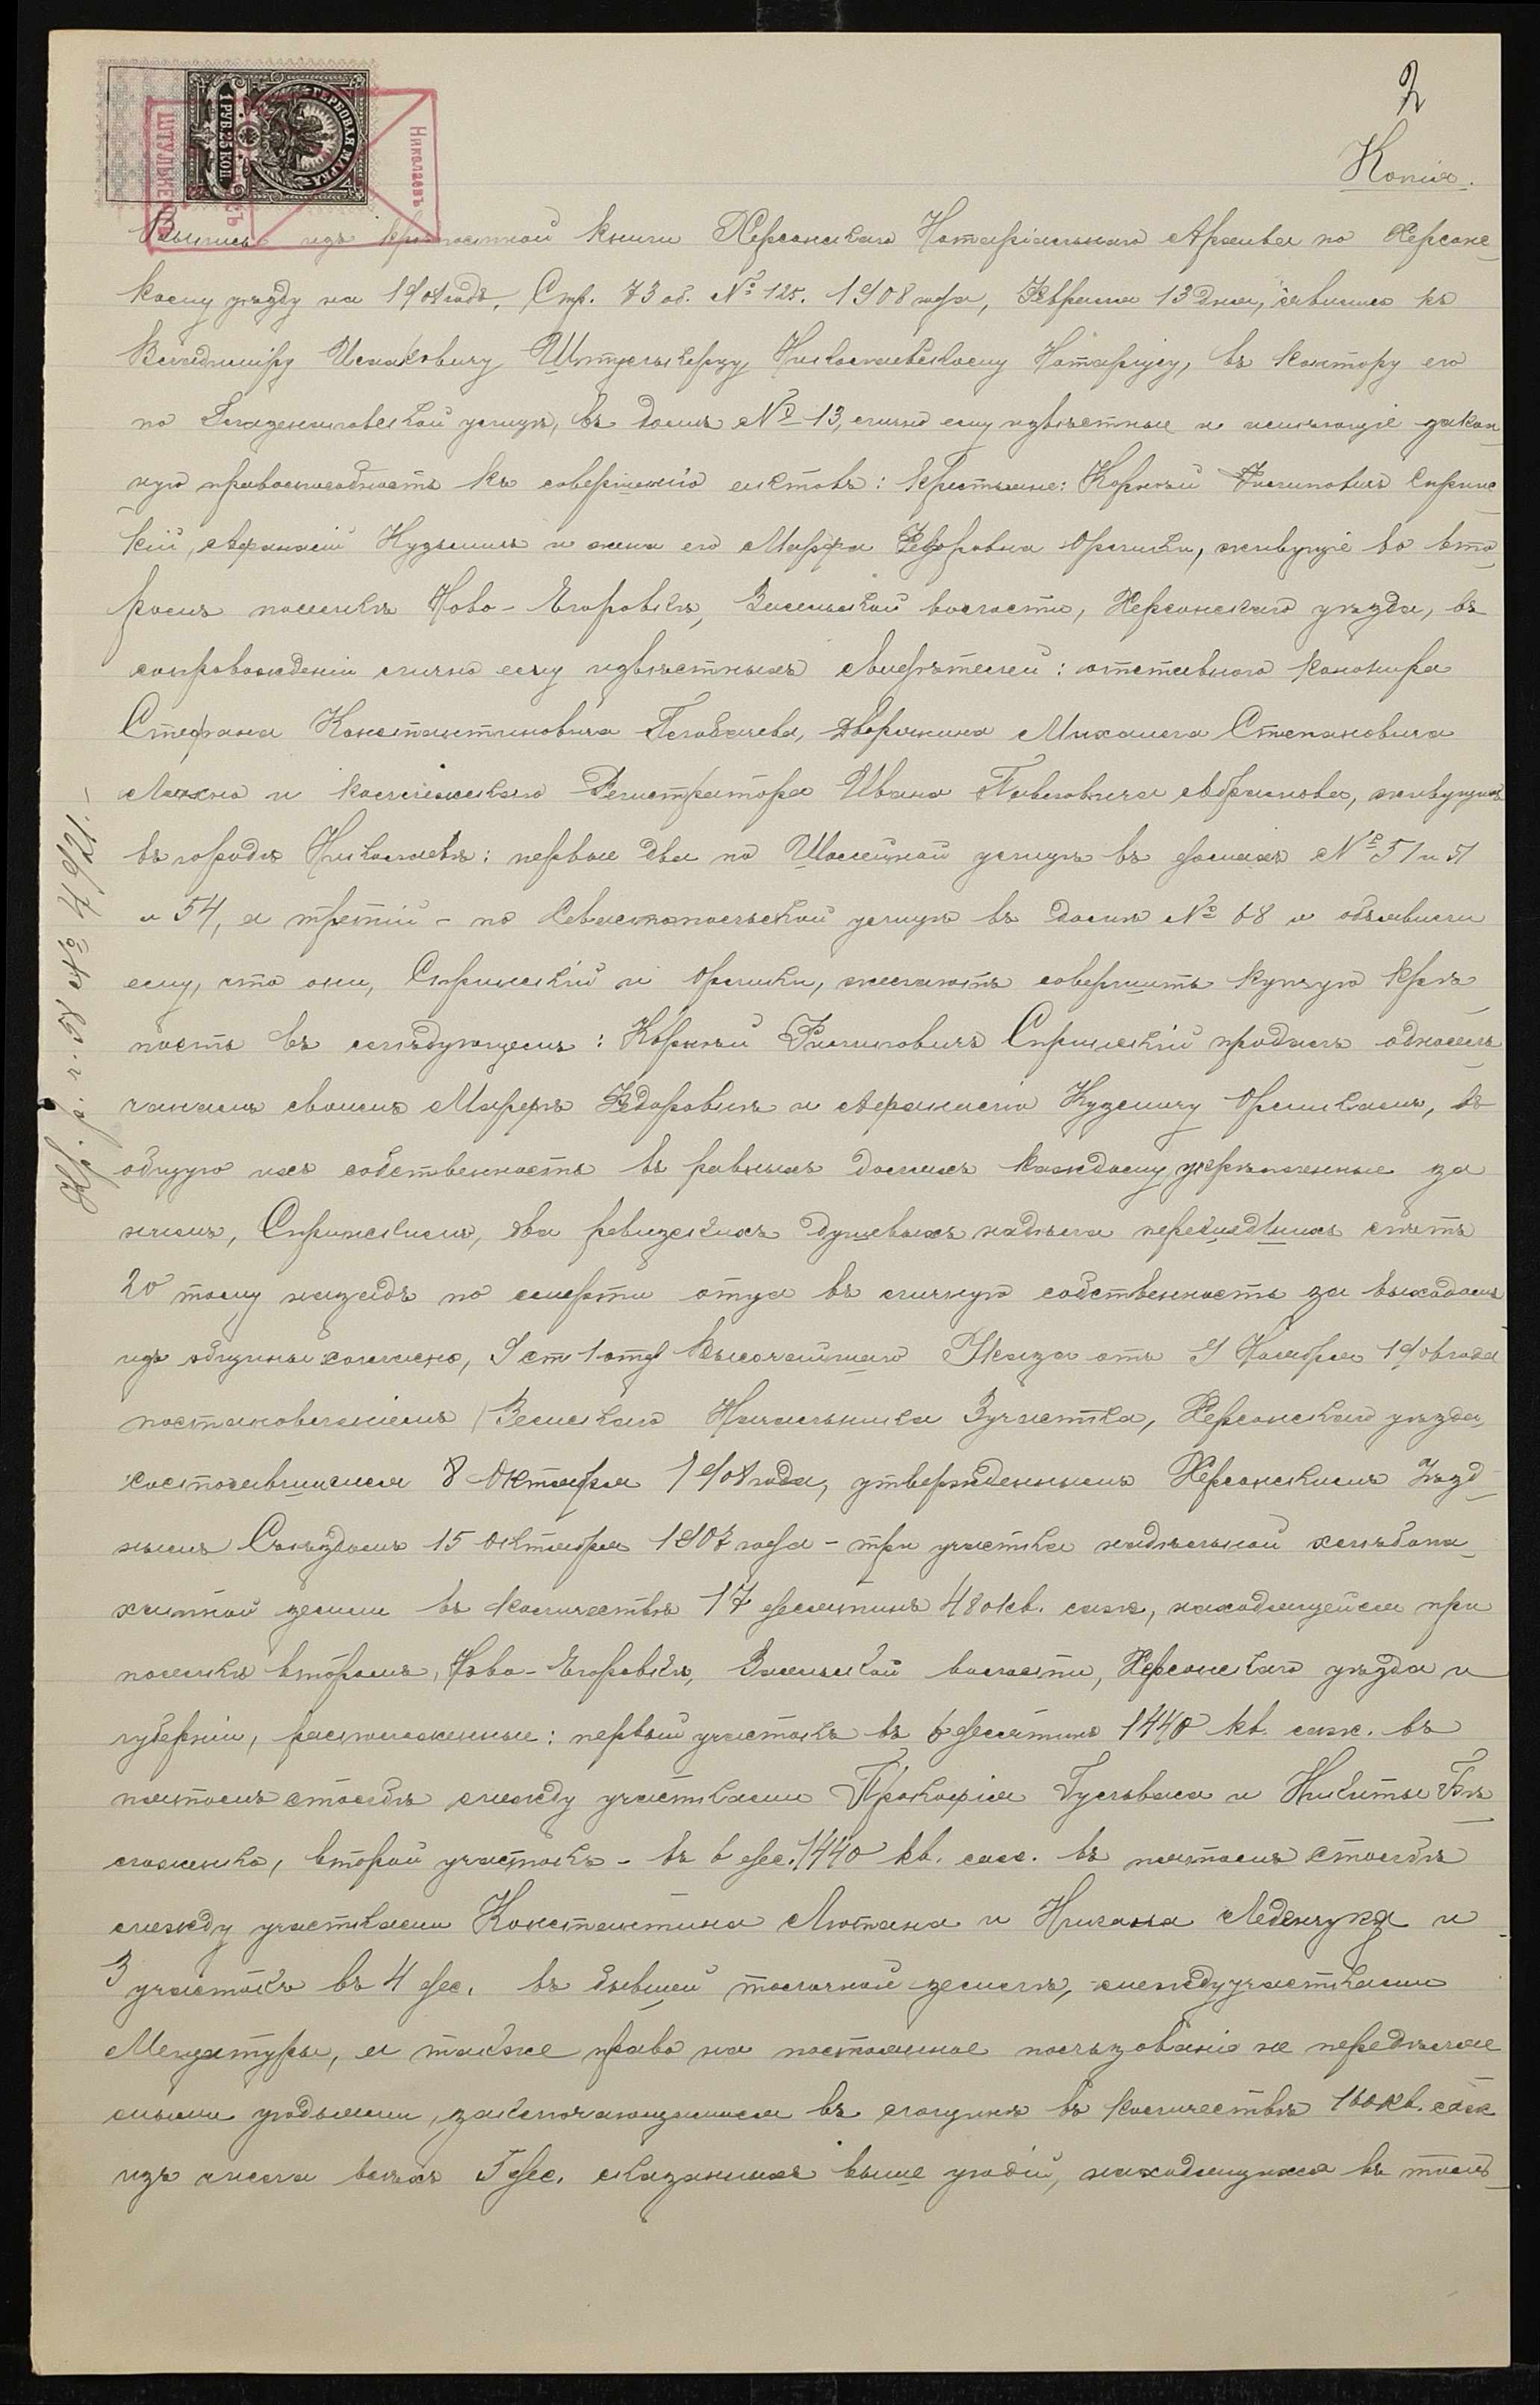 2
Копія.
ГЕРБОВАЯ МАРКА
1 РУБ. 25 КОП.
Николаевъ
Выпись изъ крѣпостной книги Херсонскаго Нотаріальнаго Архива по Херсонс
кому уѣзду на 1908 годъ, Стр. 73 об. № 125. 1908 года, Февраля 13 дня, явились къ
Владиміру Исааковичу Штулькерцу, Николаевскому Нотаріусу, въ контору его
по улицѣ, въ домѣ № 13, лично ему извѣстные и имѣющіе закон
ную правоспособность къ совершенію актовъ: крестьяне: Корнѣй Филиповичъ Сиринс
кій, Афанасій Кузьмичъ и жена его Марфа Федоровна Орлики, живущіе во вто
ромъ поселкѣ Ново-Егоровкѣ, Засельской волости, Херсонскаго уѣзда, въ
сопровожденіи лично ему извѣстныхъ свидѣтелей: отставного канонира
Стефана Константиновича Головачева, дворянина Михаила Степановича
Махно и коллежскаго Регистратора Ивана Павловича Абрамова, живущихъ
въ городѣ Николаевѣ: первые два по улицѣ въ домахъ № 51 и 51
и 54, а третій - по Севастопольской улицѣ въ домѣ № 68 и объявили
ему, что они, Сиринскій и Орлики, желаютъ совершить купчую крѣ
пость въ слѣдующемъ: Корнѣй Филиповичъ Сиринскій продалъ односель
чанамъ своимъ Марфѣ Федоровнѣ и Афанасію Кузьмичу Орликамъ, въ
общую ихъ собственность въ равныхъ доляхъ каждому, укрѣпленные за
нимъ, Сиринскимъ, два ревизскихъ душевыхъ надѣла перешедшихъ лѣтъ
20 тому назадъ по смерти отца въ личную собственность за выходомъ
изъ общины согласно, 9 ст 1 отд Высочайшаго Указа отъ 9 Ноября 1906 года
постановленіемъ Земскаго Начальника 3 участка, Херсонскаго уѣзда,
состоявшимся 8 Октября 1907 года, утвержденнымъ Херсонскимъ Уѣзд
нымъ Съѣздомъ 15 Октября 1907 года - три участка надѣльной хлѣбопа
хатной земли въ количествѣ 17 десятинъ 480 кв. саж, находящейся при
поселкѣ второмъ, Ново-Егоровкѣ, Засельской волости, Херсонскаго уѣзда и
губерніи, расположенные: первый участокъ въ 6 десятинъ 1440 кв. саж. въ
пятомъ столбѣ между участками Прокофія Гуслываса и Никиты Бѣ
ложенко, второй участокъ - въ 6 дес. 1440 кв. саж. въ пятомъ столбѣ
между участками Константина Лютана и Ничая Леденчука и
3 участокъ въ 4 дес. въ бывшей толочной землѣ, между участками
а также право на постоянное пользованіе не передѣляе
мыми угодьями, заключающимися въ въ количествѣ 160 кв. саж
изъ числа всѣхъ 5 дес. сказанныхъ выше угодій, находящихся въ томъ
№ 4921